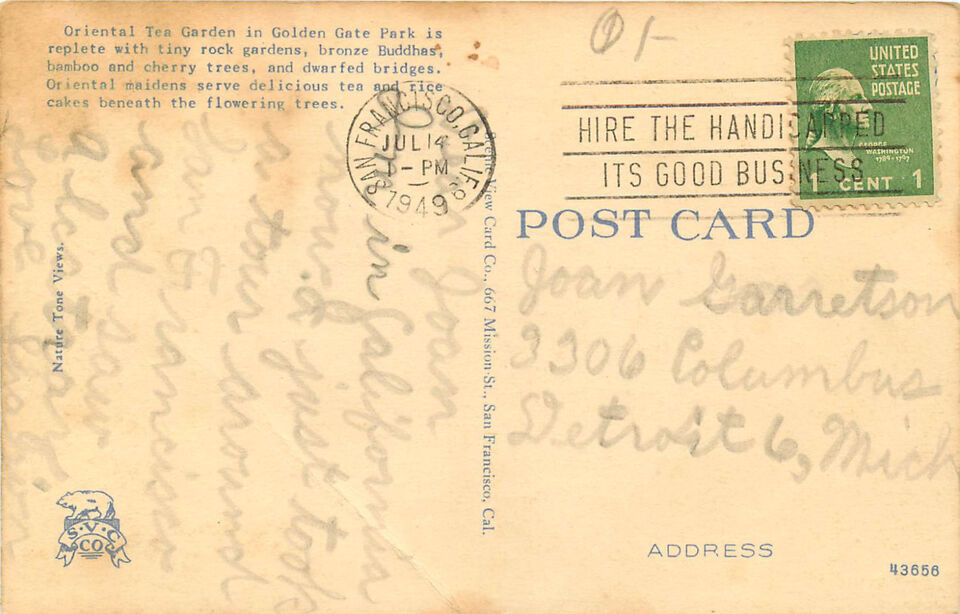 Oriental Tea Garden in Golden Gate Park is
replete with tiny rock gardens, bronze Buddhas,
bamboo and cherry trees, and dwarfed bridges.
Oriental maidens serve delicious tea and rice
cakes beneath the flowering trees.
01-
SAN FRANCISCO, CALIF.
JUL 14
PM
1949
HIRE THE HANDICAPPED
ITS GOOD BUSINESS
UNITED
STATES
POSTAGE
GEORGE
WASHINGTON
1789-1797
1 CENT 1
POST CARD
Joan
in California
just took
a tour around
Francisco
and saw
Love
Nature Tone Views.
Scenic View Card Co., 667 Mission St., San Francisco, Cal.
Joan Garretson
3306 Columbus
Detroit 6, Mich
S.V.C.
CO
ADDRESS
43656